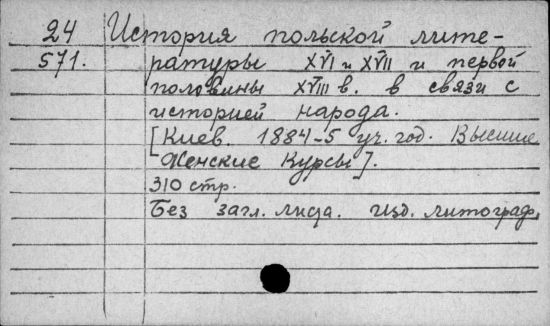 24 История польской лите-
571. ратуры XVI и XVII и первой
половины XVIII в. в связи с
историей народа.
[Киев. 1884-5 уч. год. Высшие
Женские Курсы].
310 стр.
Без загл. листа. Изд. литограф.